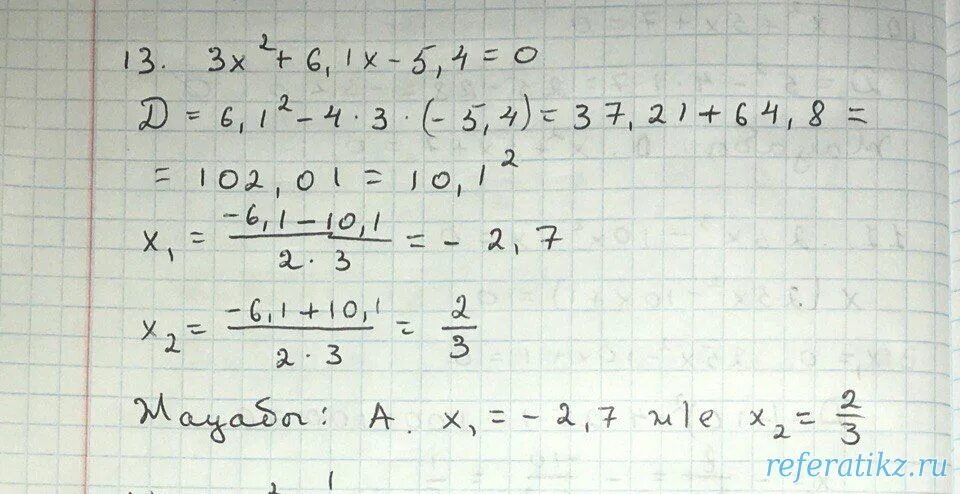 13. 3x² + 6,1x - 5,4 = 0
Д = 6,1² - 4 · 3 · (-5,4) = 37,21 + 64,8 =
= 102,01 = 10,1²
x₁ = (-6,1 - 10,1)/(2 · 3) = - 2,7
x₂ = (-6,1 + 10,1)/(2 · 3) = 2/3
Жауабы: А. x₁ = - 2,7 м/е x₂ = 2/3
referatikz.ru